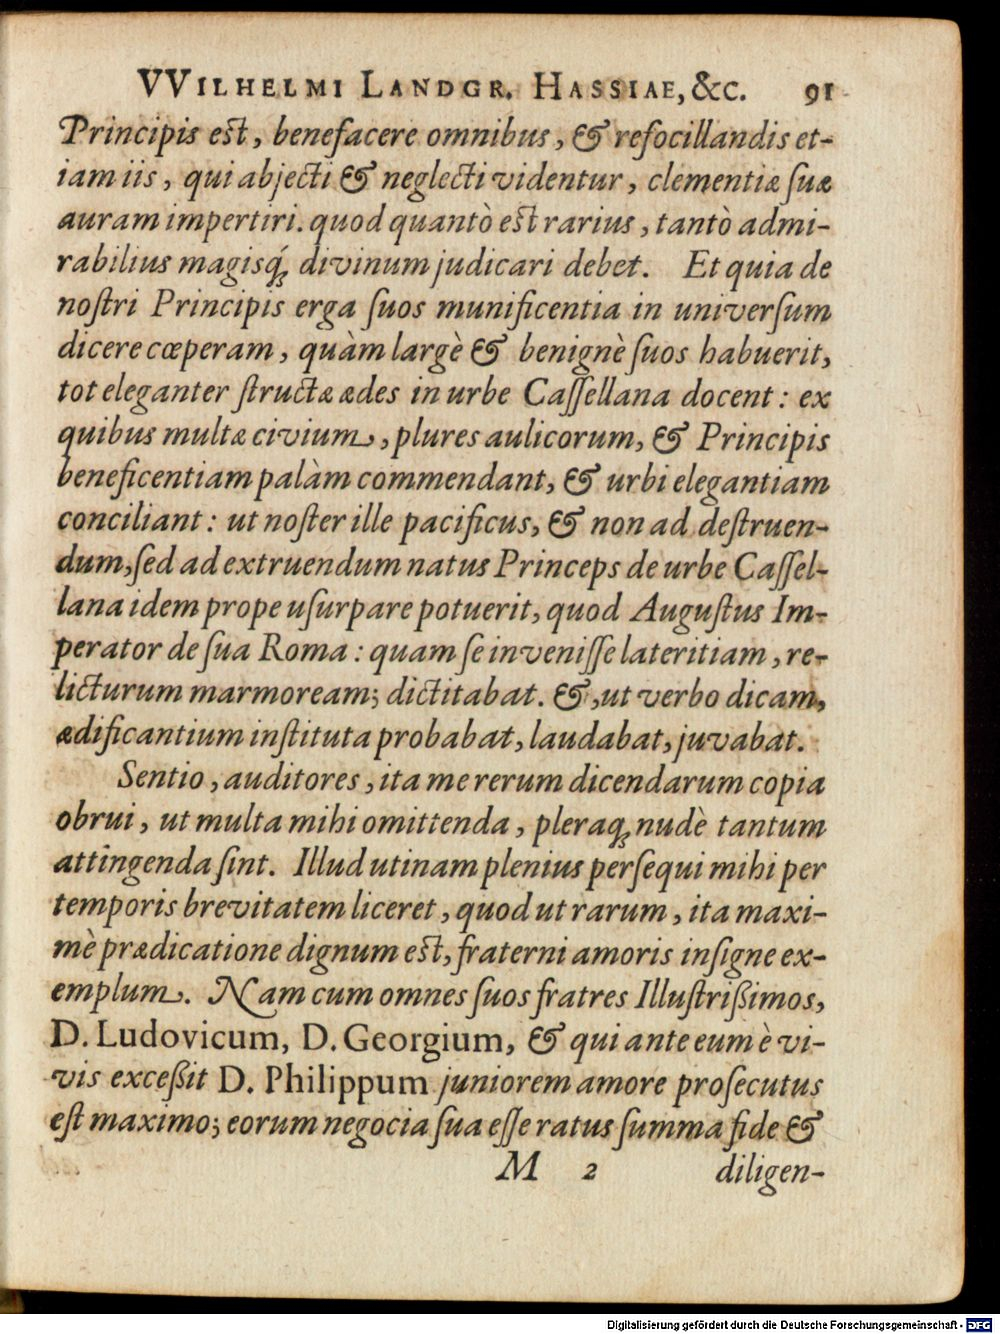 VVILHELMI LANDGR. HASSIAE, &C. 91
Principis est, benefacere omnibus, & refocillandis et-
iam iis, qui abjecti & neglecti videntur, clementiæ suæ
auram impertiri. quod quantò est rarius, tantò admi-
rabilius magisq́; divinum judicari debet. Et quia de
noſtri Principis erga ſuos munificentia in univerſum
dicere cœperam, quàm largè & benignè ſuos habuerit,
tot eleganter ſtructæ ædes in urbe Caſſellana docent: ex
quibus multæ civium, plures aulicorum, & Principis
beneficentiam palàm commendant, & urbi elegantiam
conciliant: ut noſter ille pacificus, & non ad deſtruen-
dum, ſed ad extruendum natus Princeps de urbe Caſſel-
lana idem prope uſurpare potuerit, quod Auguſtus Im-
perator de ſua Roma: quam ſe inveniſſe lateritiam, re-
licturum marmoream; dictitabat. &, ut verbo dicam,
ædificantium inſtituta probabat, laudabat, juvabat.
Sentio, auditores, ita me rerum dicendarum copia
obrui, ut multa mihi omittenda, pleraq; nudè tantum
attingenda ſint. Illud utinam plenius perſequi mihi per
temporis brevitatem liceret, quod ut rarum, ita maxi-
mè prædicatione dignum est, fraterni amoris inſigne ex-
emplum. Nam cum omnes ſuos fratres Illuſtrißimos,
D. Ludovicum, D. Georgium, & qui ante eum è vi-
vis exceßit D. Philippum juniorem amore proſecutus
eſt maximo; eorum negocia ſua eſſe ratus ſumma fide &
M 2 diligen-
Digitalisierung gefördert durch die Deutsche Forschungsgemeinschaft - DFG